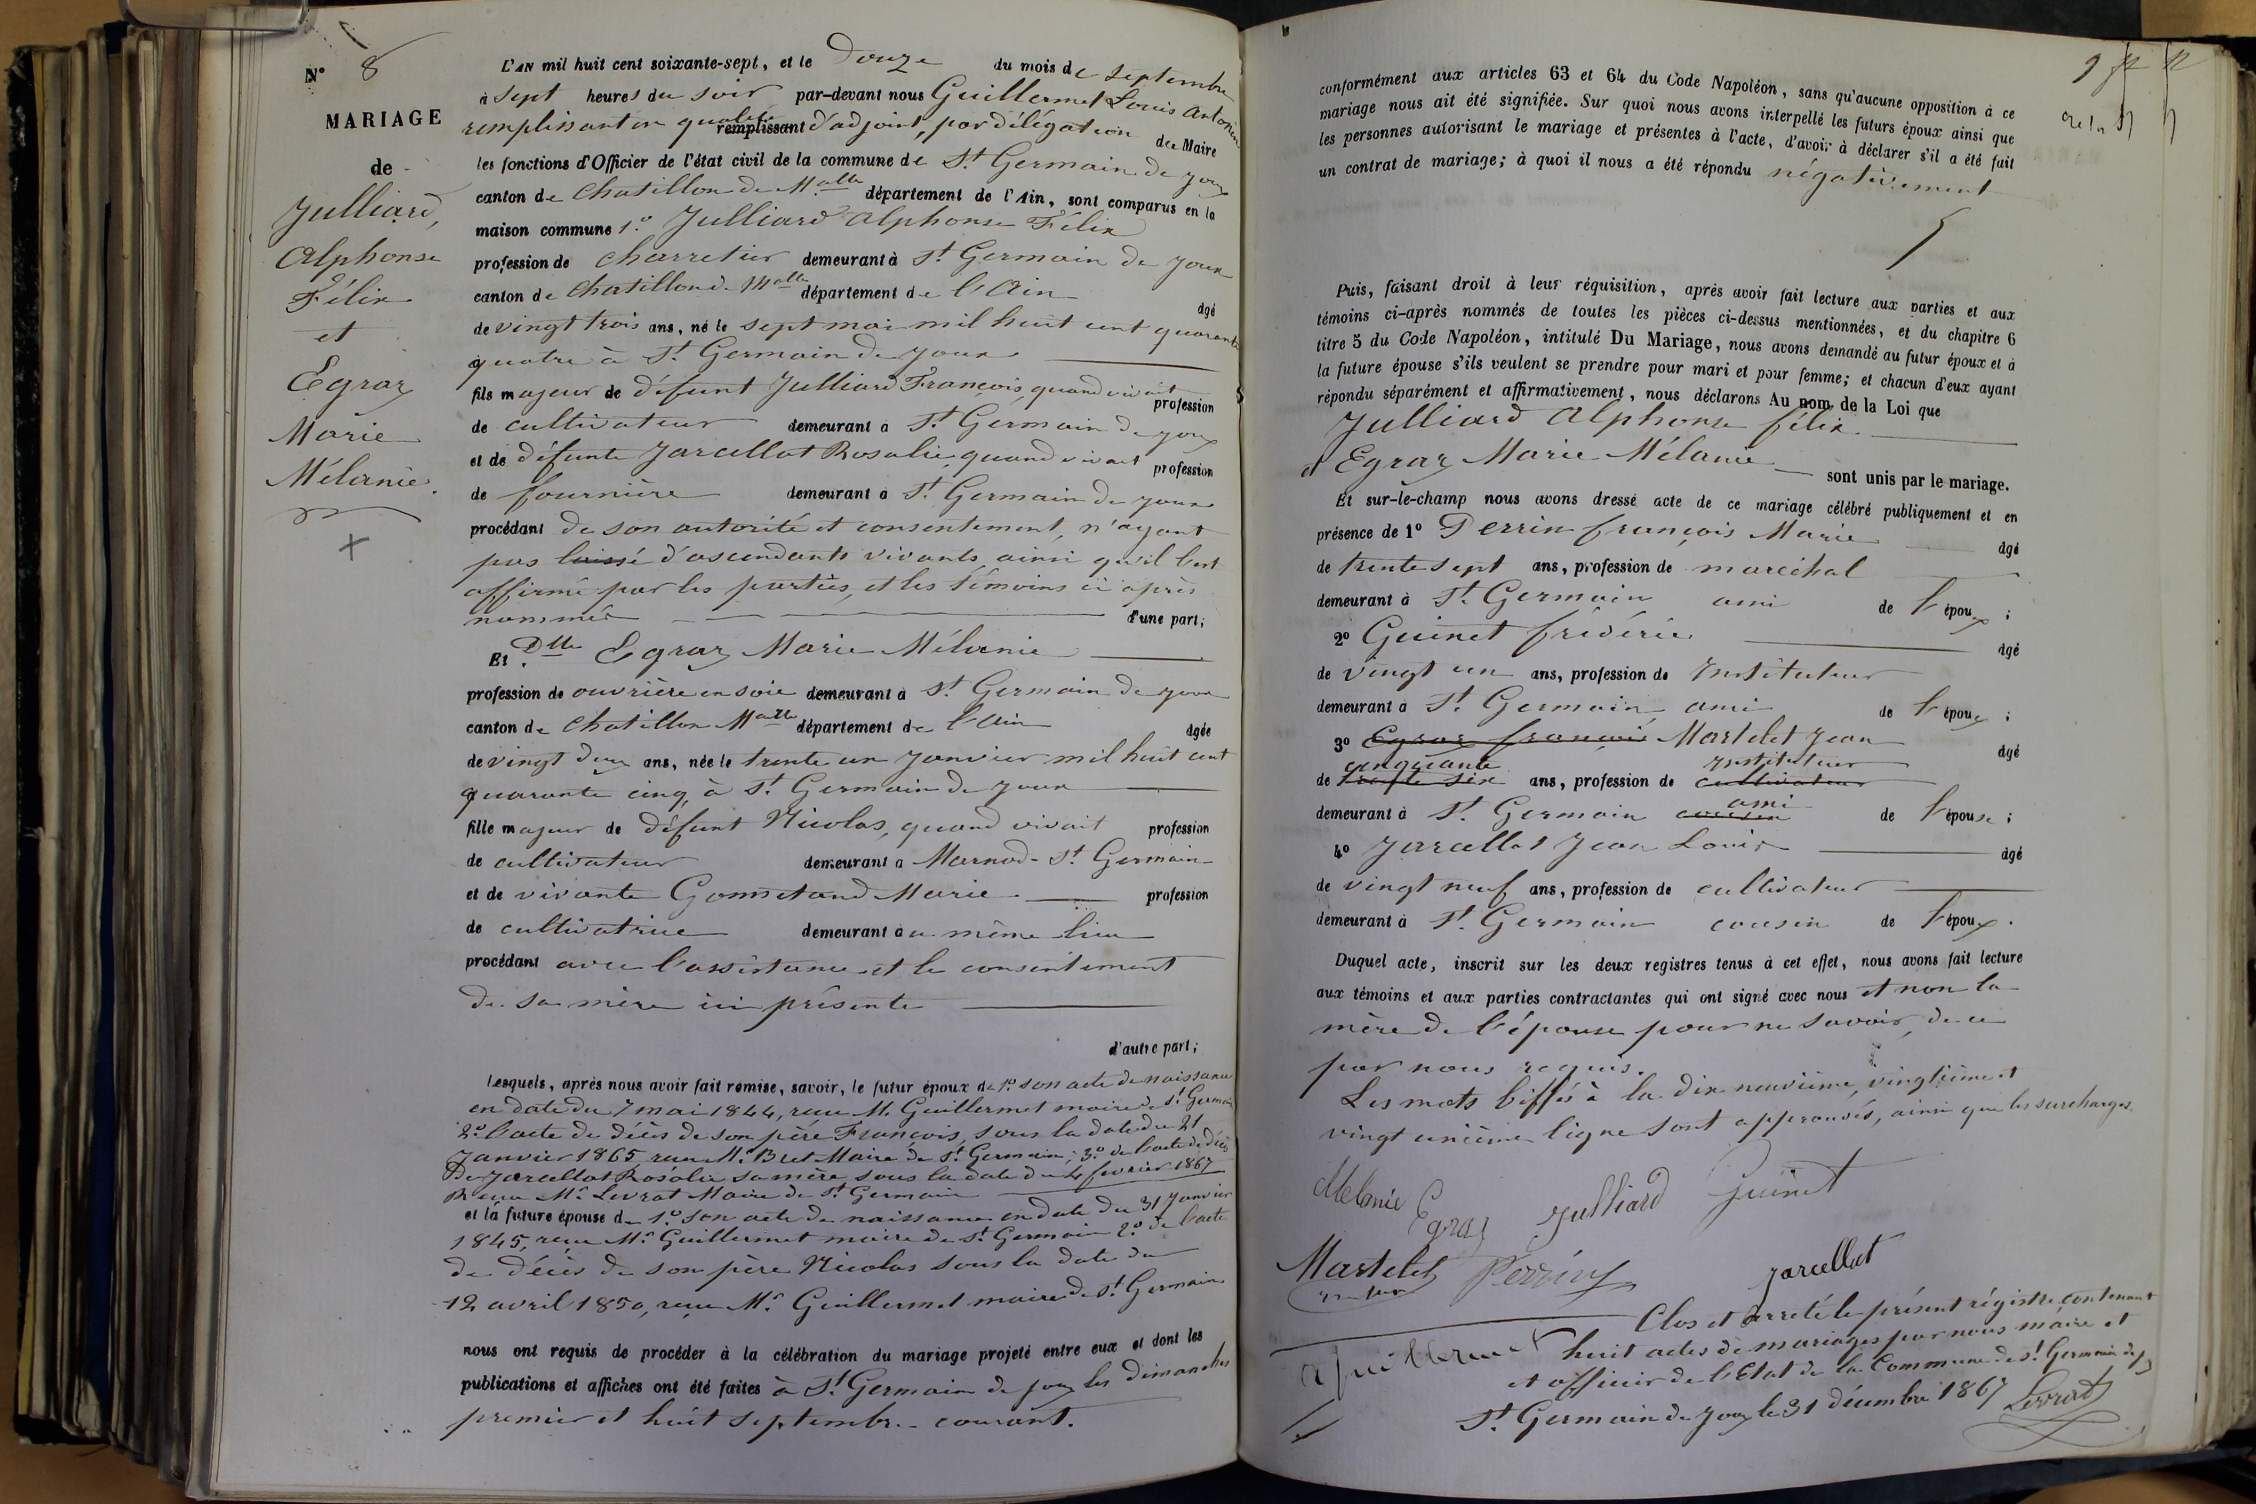 N° 8
MARIAGE
de
Julliard,
Alphonse
Félix
et
Egraz
Marie
Mélanie.
L'AN mil huit cent soixante-sept, et le douze du mois de septembre
à sept heures du soir par-devant nous Guillermet Louis Antonin
remplissant en qualité remplissant d'adjoint, par délégation du Maire
les fonctions d'Officier de l'état civil de la commune de St Germain de Joux
canton de Chatillon de Malle département de l'Ain, sont comparus en la
maison commune 1° Julliard Alphonse Félix
profession de charretier demeurant à St Germain de Joux
canton de Chatillon de Malle département de l'Ain âgé
de vingt trois ans, né le sept mai mil huit cent quarante
quatre à St Germain de Joux
fils majeur de défunt Julliard François, quand vivait profession
de cultivateur demeurant à St Germain de Joux
et de défunte Jarcellat Rosalie, quand vivait profession
de fournière demeurant à St Germain de Joux
procédant de son autorité et consentement, n'ayant
pas laissé d'ascendants vivants, ainsi qu'il l'est
affirmé par les parties, et les témoins ci après
nommés d'une part;
Et Dlle Egraz Marie Mélanie
profession de ouvrière en soie demeurant à St Germain de Joux
canton de Chatillon Malle département de l'Ain âgée
de vingt deux ans, née le trente un janvier mil huit cent
quarante cinq, à St Germain de Joux
fille majeur de défunt Nicolas, quand vivait profession
de cultivateur demeurant à Marnod - St Germain
et de vivante Gonnetand Marie profession
de cultivatrice demeurant au même lieu
procédant avec l'assistance et le consentement
de sa mère ici présente
d'autre part;
Lesquels, après nous avoir fait remise, savoir, le futur époux de 1° son acte de naissance
en date du 7 mai 1844, reçu M. Guillermet maire de St Germain
2° l'acte de décès de son père François, sous la date du 21
Janvier 1865 reçu Mr Bret Maire de St Germain; 3° de l'acte de décès
De Jarcellat Rosalie sa mère sous la date du 4 février 1867
reçu Mr Levrat Maire de St Germain
et la future épouse de 1° son acte de naissance en date du 31 Janvier
1845, reçu Mr Guillermet maire de St Germain 2° de l'acte
de décès de son père Nicolas sous la date du
12 avril 1850, reçu Mr Guillermet maire de St Germain
nous ont requis de procéder à la célébration du mariage projeté entre eux et dont les
publications et affiches ont été faites à St Germain de Joux les dimanches
premier et huit septembre courant.
conformément aux articles 63 et 64 du Code Napoléon, sans qu'aucune opposition à ce
mariage nous ait été signifiée. Sur quoi nous avons interpellé les futurs époux ainsi que
les personnes autorisant le mariage et présentes à l'acte, d'avoir à déclarer s'il a été fait
un contrat de mariage; à quoi il nous a été répondu négativement
Puis, faisant droit à leur réquisition, après avoir fait lecture aux parties et aux
témoins ci-après nommés de toutes les pièces ci-dessus mentionnées, et du chapitre 6
titre 5 du Code Napoléon, intitulé Du Mariage, nous avons demandé au futur époux et à
la future épouse s'ils veulent se prendre pour mari et pour femme; et chacun d'eux ayant
répondu séparément et affirmativement, nous déclarons Au nom de la Loi que
Julliard Alphonse félix
et Egraz Marie Mélanie sont unis par le mariage.
Et sur-le-champ nous avons dressé acte de ce mariage célébré publiquement et en
présence de 1° Perrin françois Marie âgé
de trente sept ans, profession de maréchal
demeurant à St Germain ami de l'époux;
2° Guinet frédéric âgé
de vingt un ans, profession de Instituteur
demeurant à St Germain, ami de l'époux;
3° Egraz françois Martelet Jean âgé
cinquante Instituteur
de trente six ans, profession de cultivateur
ami
demeurant à St Germain cousin de l'épouse;
4° Jarcellat Jean Louis âgé
de vingt neuf ans, profession de cultivateur
demeurant à St Germain cousin de l'époux.
Duquel acte, inscrit sur les deux registres tenus à cet effet, nous avons fait lecture
aux témoins et aux parties contractantes qui ont signé avec nous et non la
mère de l'épouse pour ne savoir, de ce
par nous requis.
Les mots biffés à la dix neuvième, vingtième et
vingt unième ligne sont approuvés, ainsi que les surcharges.
Mélanie Egraz Julliard Guinet
Martelet Perrin Jarcellat
Guillermet
Clos et arrêté le présent régistre contenant
huit actes de mariages par nous maire et
et officier de l'Etat de la Commune de St Germain de J
St Germain de Joux le 31 décembre 1867 Levrat